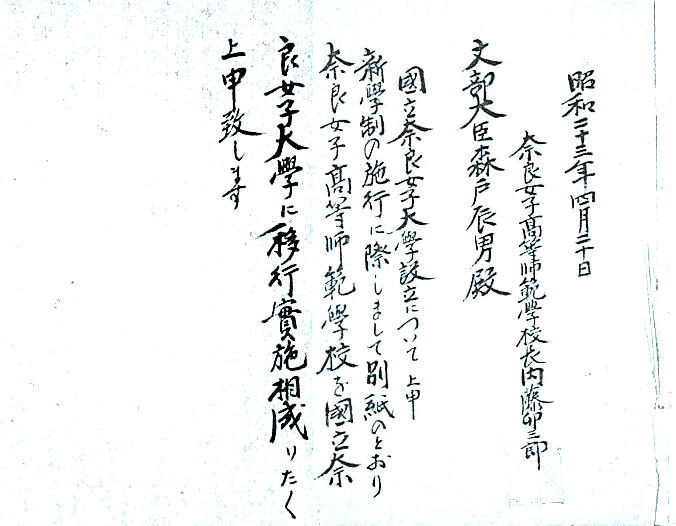 昭和二十三年四月二十日
奈良女子高等師範學校長内藤卯三郎
文部大臣森戸辰男殿
國立奈良女子大學設立について上申
新學制の施行に際しまして別紙のとおり
奈良女子高等師範學校を國立奈
良女子大學に移行實施相成りたく
上申致します